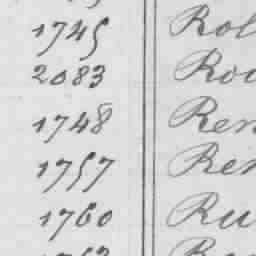 1745 Rol
2083 Roc
1748 Ren
1757 Ren
1760 Ru